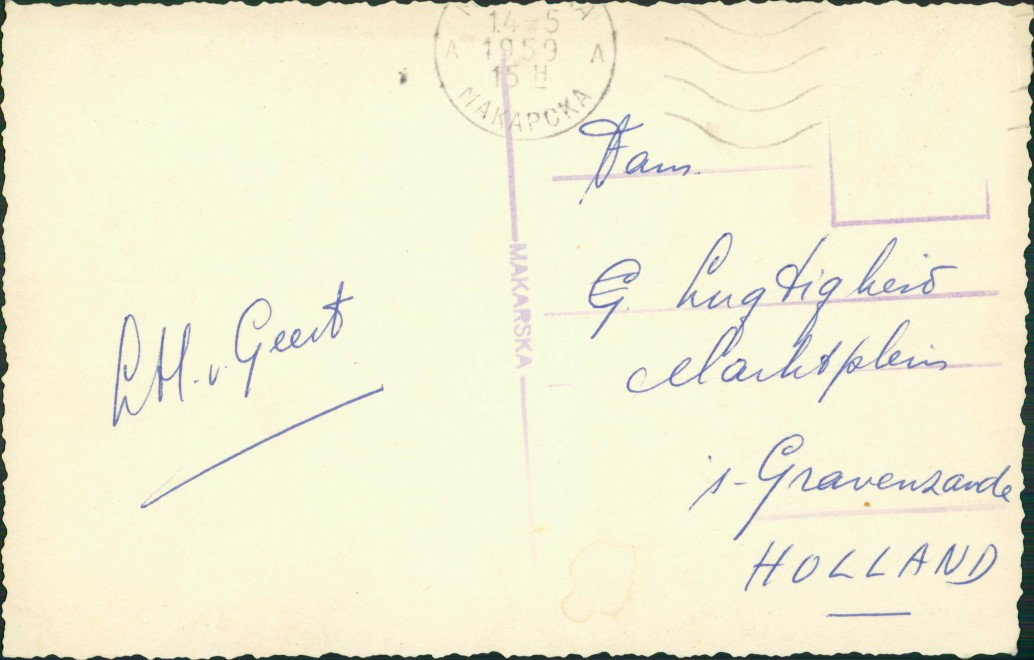 14-5
A 1959 A
15 H
МАКАРСКА
MAKARSKA
Fam.
G. Lugtigheid
Marktplein
's-Gravenzande
HOLLAND
v. Geest